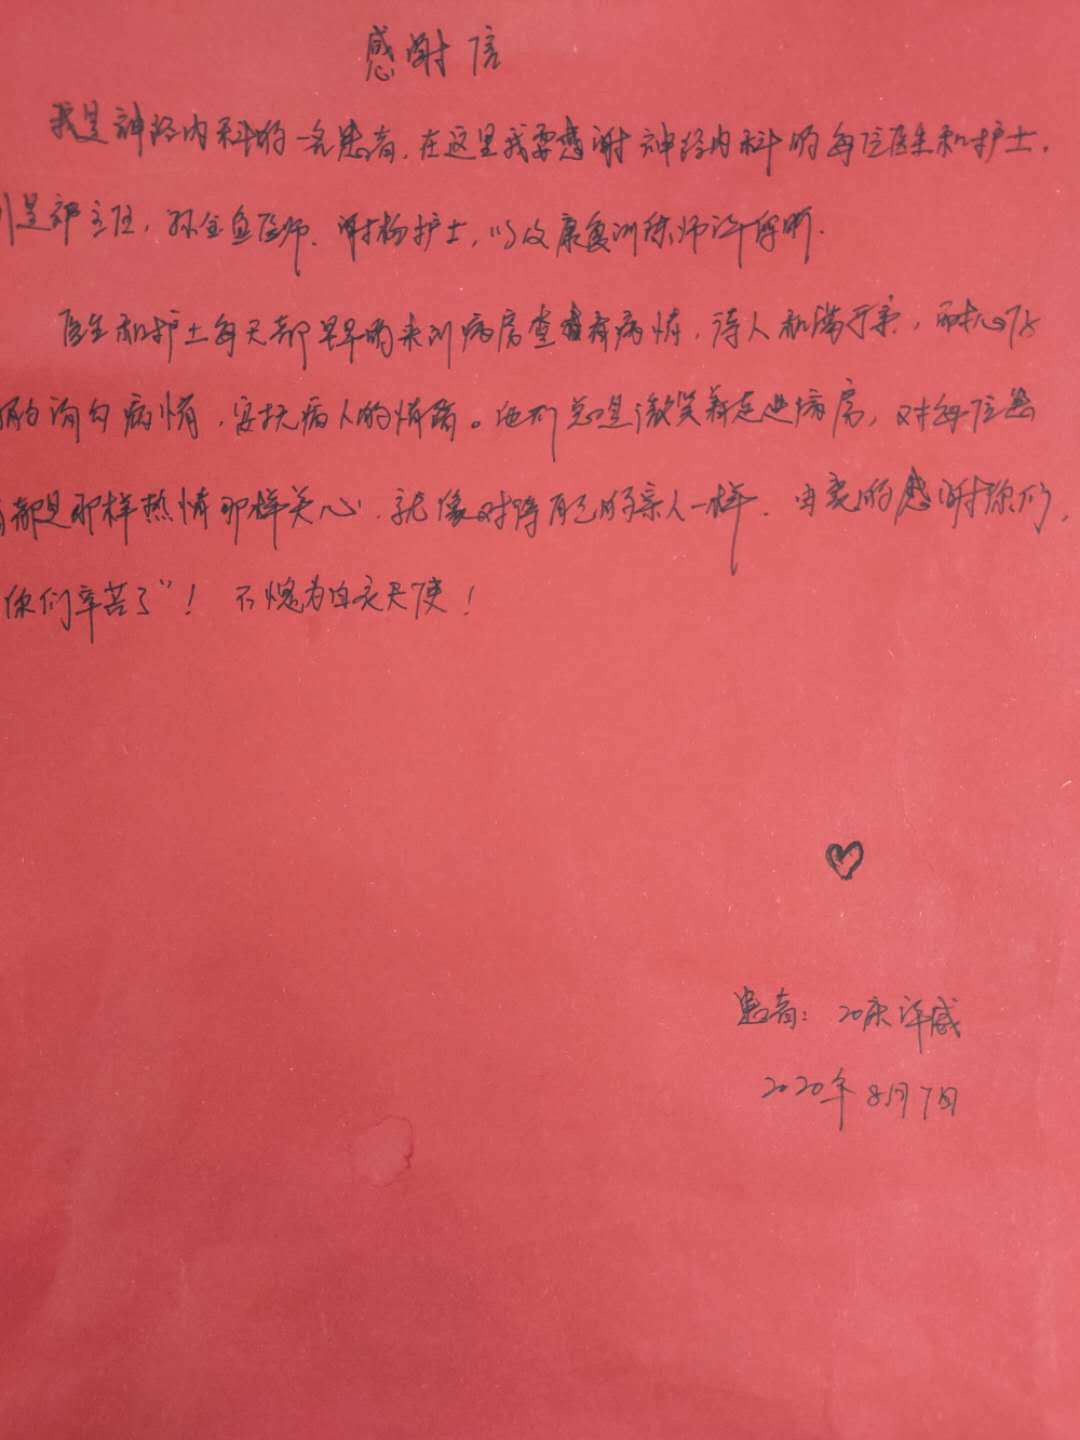 感谢信
我是神经内科的一名患者,在这里我要感谢神经内科的每位医生和护士,
别是郭主任,孙金鱼医师、谢杨护士,以及康复训练师许保明.
医生和护士每天都早早的来到病房查看病情,待人和蔼可亲,耐心仔
细的询问病情,安抚病人的情绪。他们总是微笑着走进病房,对每位患
者都是那样热情那样关心.就像对待自己的亲人一样.由衷的感谢你们,
你们辛苦了"!不愧为白衣天使!
患者:20床许感
2020年8月7日